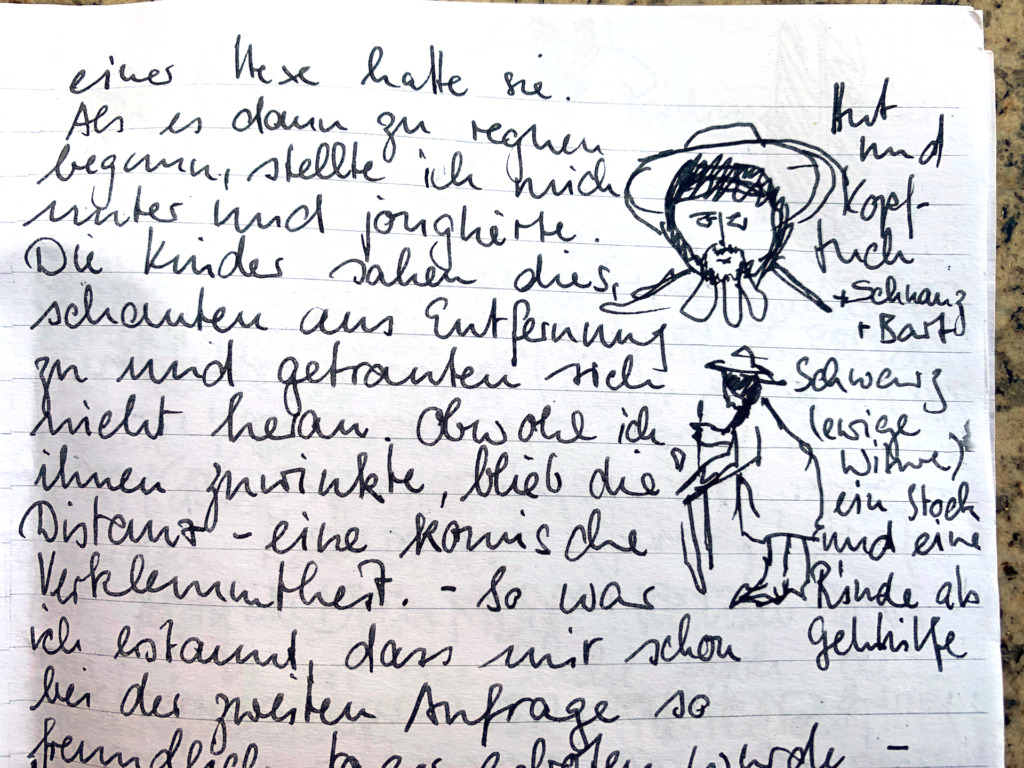 einer Hexe hatte sie.
Als es dann zu regnen
begann, stellte ich mich
unter und jonglierte.
Die Kinder sahen dies,
schauten aus Entfernung
zu und getrauten sich
nicht heran. Obwohl ich
ihnen zuwinkte, blieb die
Distanz - eine komische
Verklemmtheit. - So war
ich erstaunt, dass mir schon
bei der zweiten Anfrage so
freundlich wurde -
Hut
und
Kopf-
tuch
+ Schnauz
+ Bart
Schwarz
(ewige
Witwe)
ein Stock
und eine
Rinde als
Gehhilfe